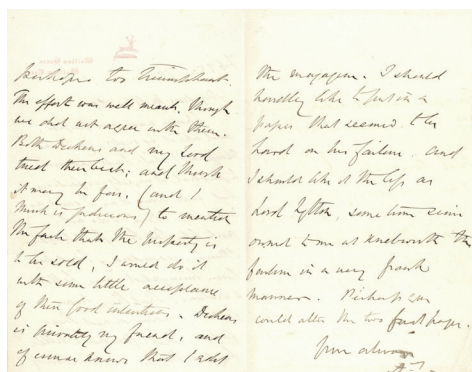 perhaps too triumphant.
The effort was well meant though
we did not agree with them.
Both Dickens and my Lord
tried their best; and though
it may be fair, (and I
think is judicious) to mention
the fact that the property is
to be sold, I would do it
with some little acceptance
of their good intentions. Dickens
is privately my friend, and
of course knows that I edit
the magazine. I should
hardly like to put in a
paper that seemed to be
hard on his failure. and
I should like it the less as
Lord Lytton, some time since
owned to me at Knebworth the
failure in a very frank
manner. Perhaps you
could alter the two first pages.
yours always
A.T.